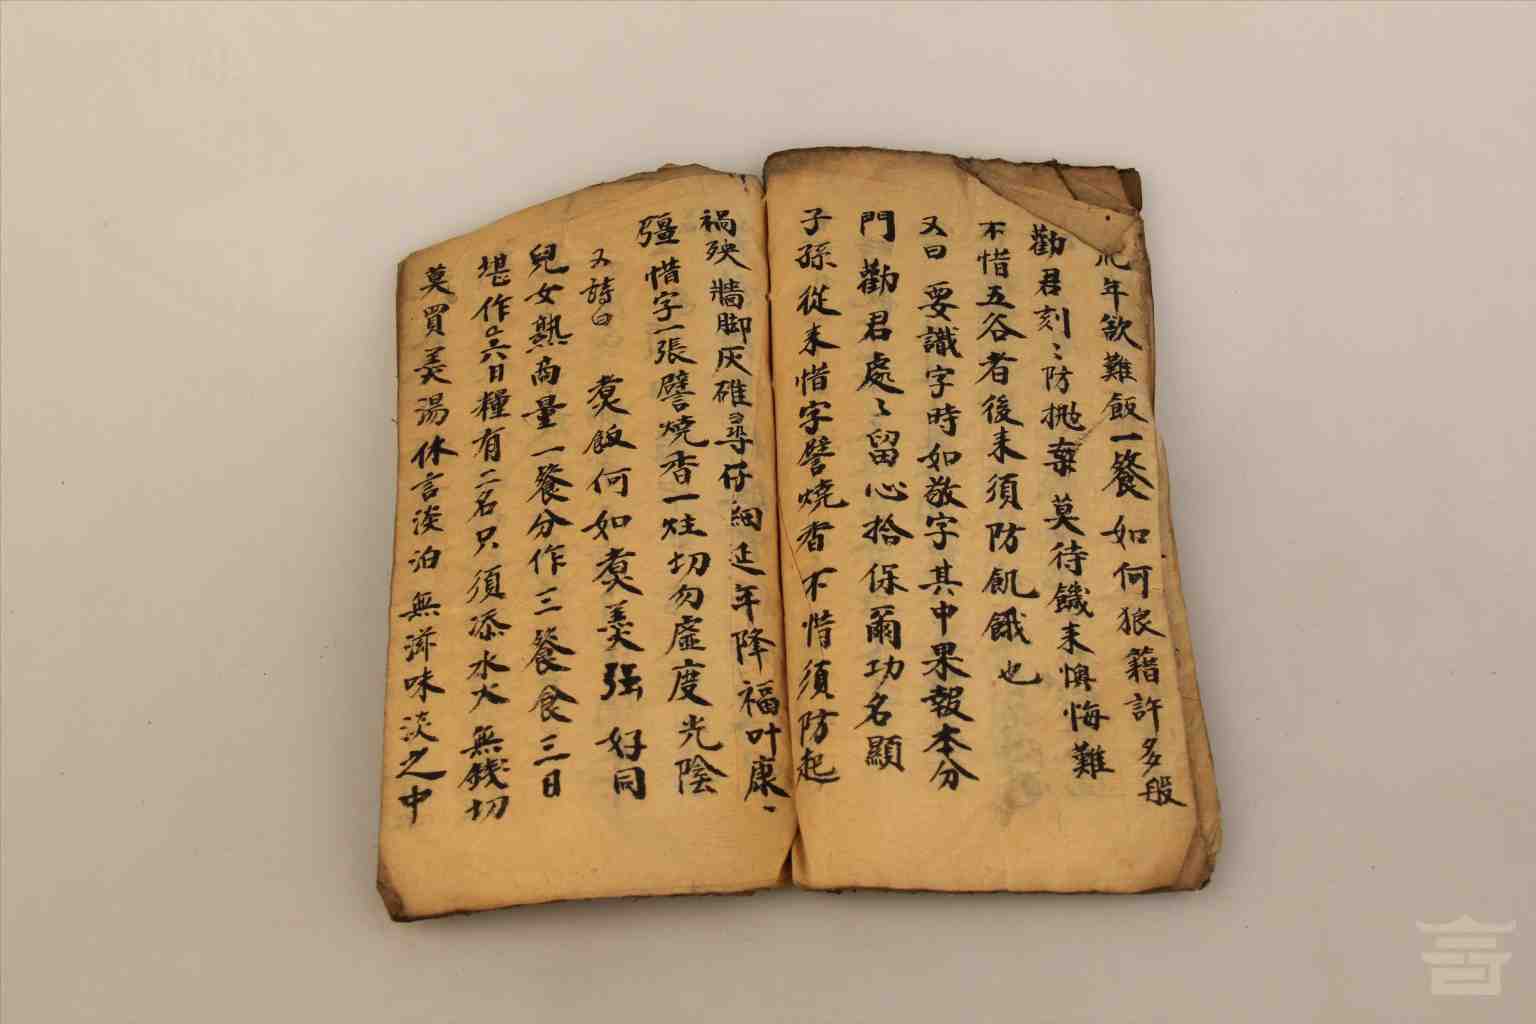 年欲難飯一餐如何狼藉許多般
勸君刻〻防抛棄莫待饑来懊悔難
不惜五谷者後来須防飢餓也
又曰要識字時如敬字其中果報本分
門勸君處〻留心拾保爾功名顯
子孫從来惜字譬燒香不惜須防起
禍殃牆脚灰碓尋仔細延年降福叶康〻
彊惜字一張譬燒香一炷切勿虛度光陰
又詩曰煑飯何如煑羹強好同
兒女熟商量一餐分作三餐食三日
堪作六日糧有二名只須添水火無錢切
莫買羹湯休言淡泊無滋味淡之中